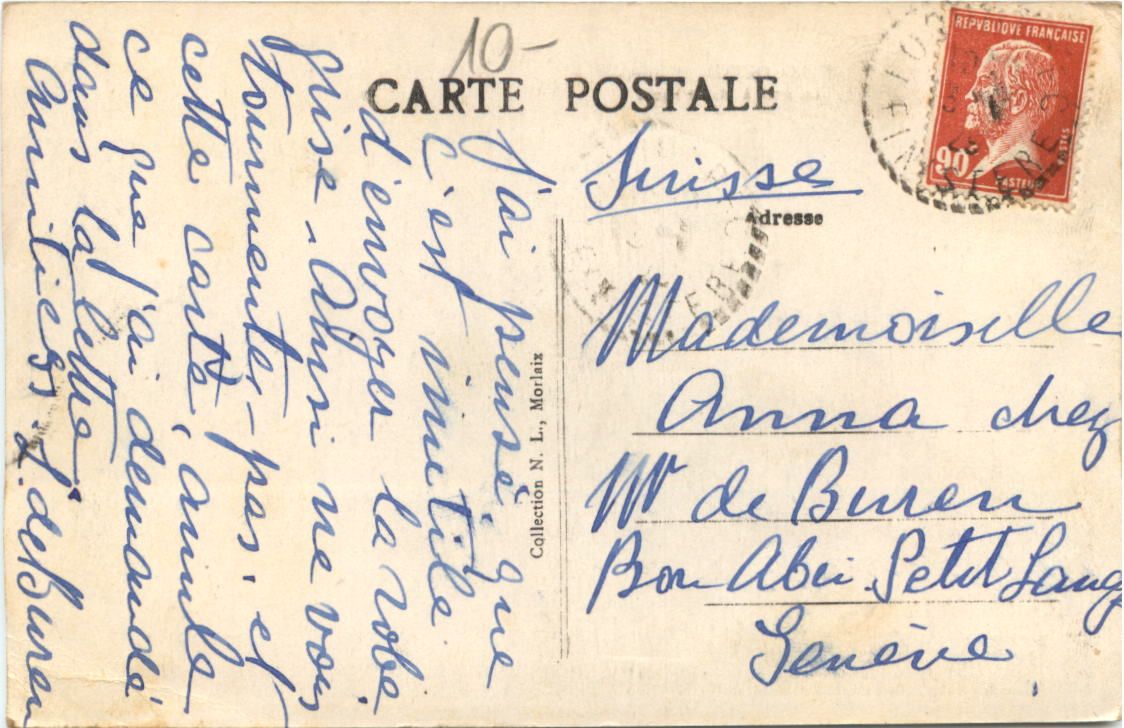 10-
CARTE POSTALE
REPVBLIQVE FRANÇAISE
90
POSTES
PASTEUR
FINISTERE
Suisse
Adresse
Mademoiselle
Anna chez
Mr de Buren
Bon Abri Petit
Genève
Collection N. L., Morlaix
J'ai pensé que
c'est inutile
d'envoyer la robe
grise. Ainsi ne vous
tourmentez pas. et
cette carte, annule
ce que j'ai demandé
dans la lettre.
Amitiés, de Buren